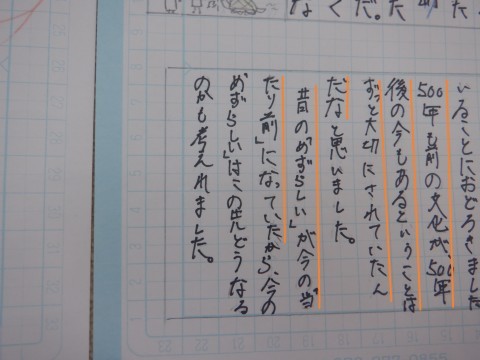 なくだ。た
いることにおどろきました
500年も前の文化が、500年
後の今もあるということは
ずっと大切にされていたん
だなと思いました。
昔の「めずらしい」が今の「当
たり前」になっていたから、今の
「めずらしい」はこの先どうなる
のかも考えれました。